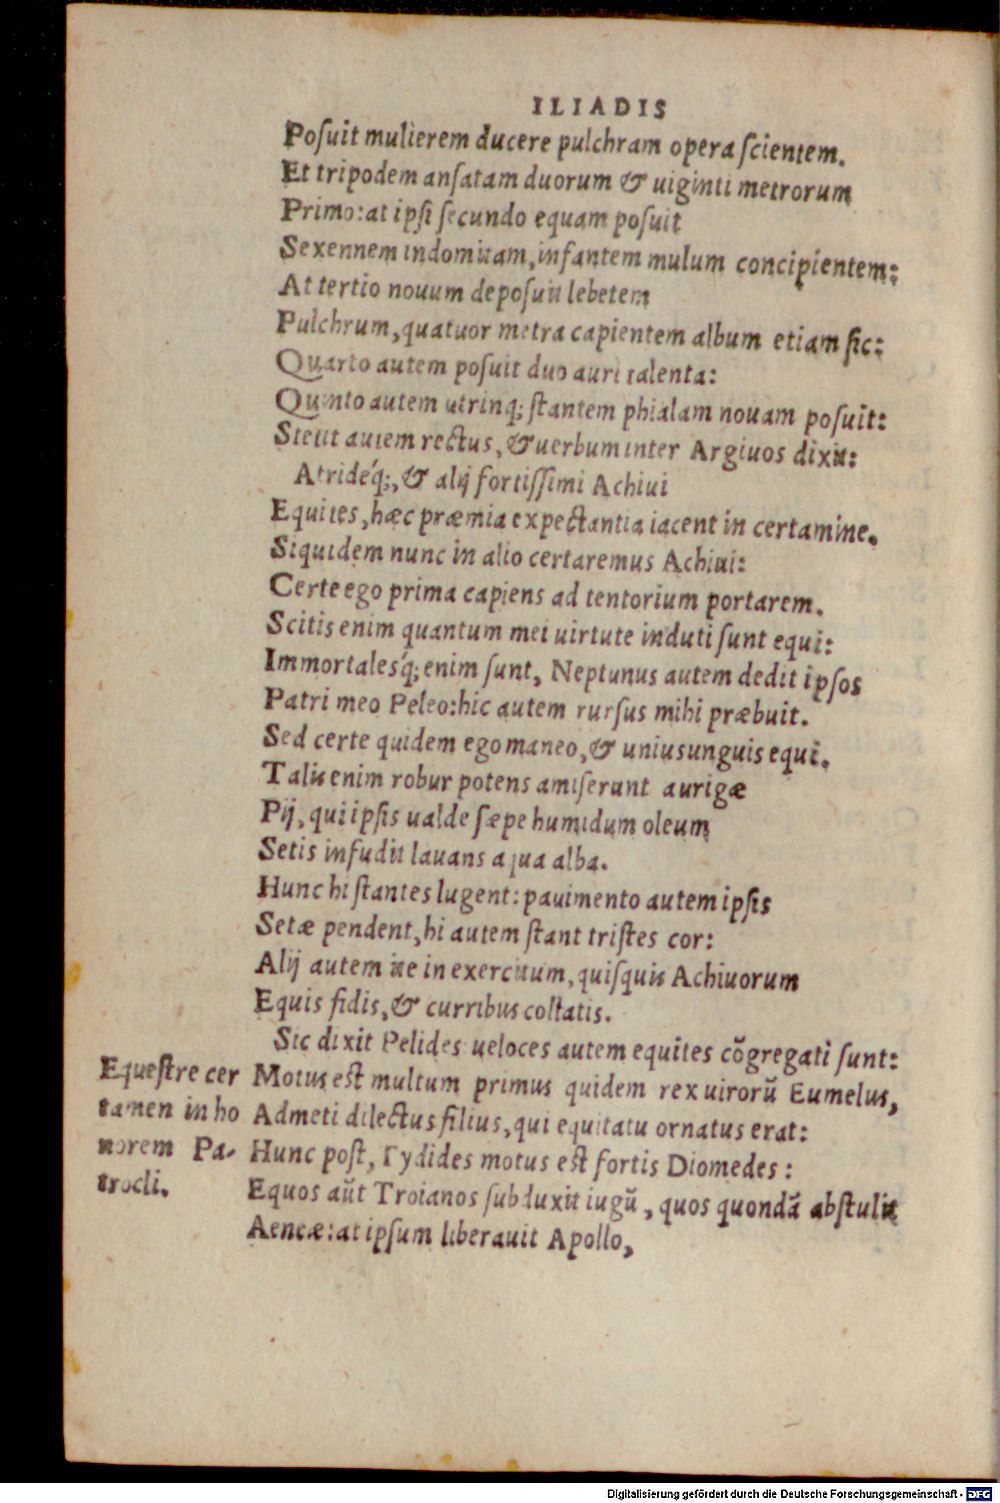 ILIADIS
Poſuit mulierem ducere pulchram opera ſcientem.
Et tripodem anſatam duorum & uiginti metrorum
Primo: at ipſi ſecundo equam poſuit
Sexennem indomitam, infantem mulum concipientem:
At tertio nouum depoſuit lebetem
Pulchrum, quatuor metra capientem album etiam ſic:
Quarto autem poſuit duo auri talenta:
Quinto autem utrinq; ſtantem phialam nouam poſuit:
Stetit autem rectus, & uerbum inter Argiuos dixit:
Atride´q;, & alij fortiſſimi Achiui
Equites, hæc præmia expectantia iacent in certamine.
Siquidem nunc in alio certaremus Achiui:
Certe ego prima capiens ad tentorium portarem.
Scitis enim quantum mei uirtute induti ſunt equi:
Immortales´q; enim ſunt, Neptunus autem dedit ipſos
Patri meo Peleo: hic autem rurſus mihi præbuit.
Sed certe quidem ego maneo, & unius unguis equi.
Talis enim robur potens amiſerunt aurigæ
Pij, qui ipſis ualde ſæpe humidum oleum
Setis infudit lauans aqua alba.
Hunc hi ſtantes lugent: pauimento autem ipſis
Setæ pendent, hi autem ſtant triſtes cor:
Alij autem ite in exercitum, quiſquis Achiuorum
Equis fidis, & curribus collatis.
Sic dixit Pelides ueloces autem equites cõgregati ſunt:
Motus est multum primus quidem rex uirorũ Eumelus,
Admeti dilectus filius, qui equitatu ornatus erat:
Hunc poſt, Tydides motus eſt fortis Diomedes:
Equos aũt Troianos ſubduxit iugũ, quos quondã abſtulit
Aeneæ: at ipſum liberauit Apollo,
Equeſtre cer
tamen in ho
norem Pa-
trocli.
Digitalisierung gefördert durch die Deutsche Forschungsgemeinschaft - DFG